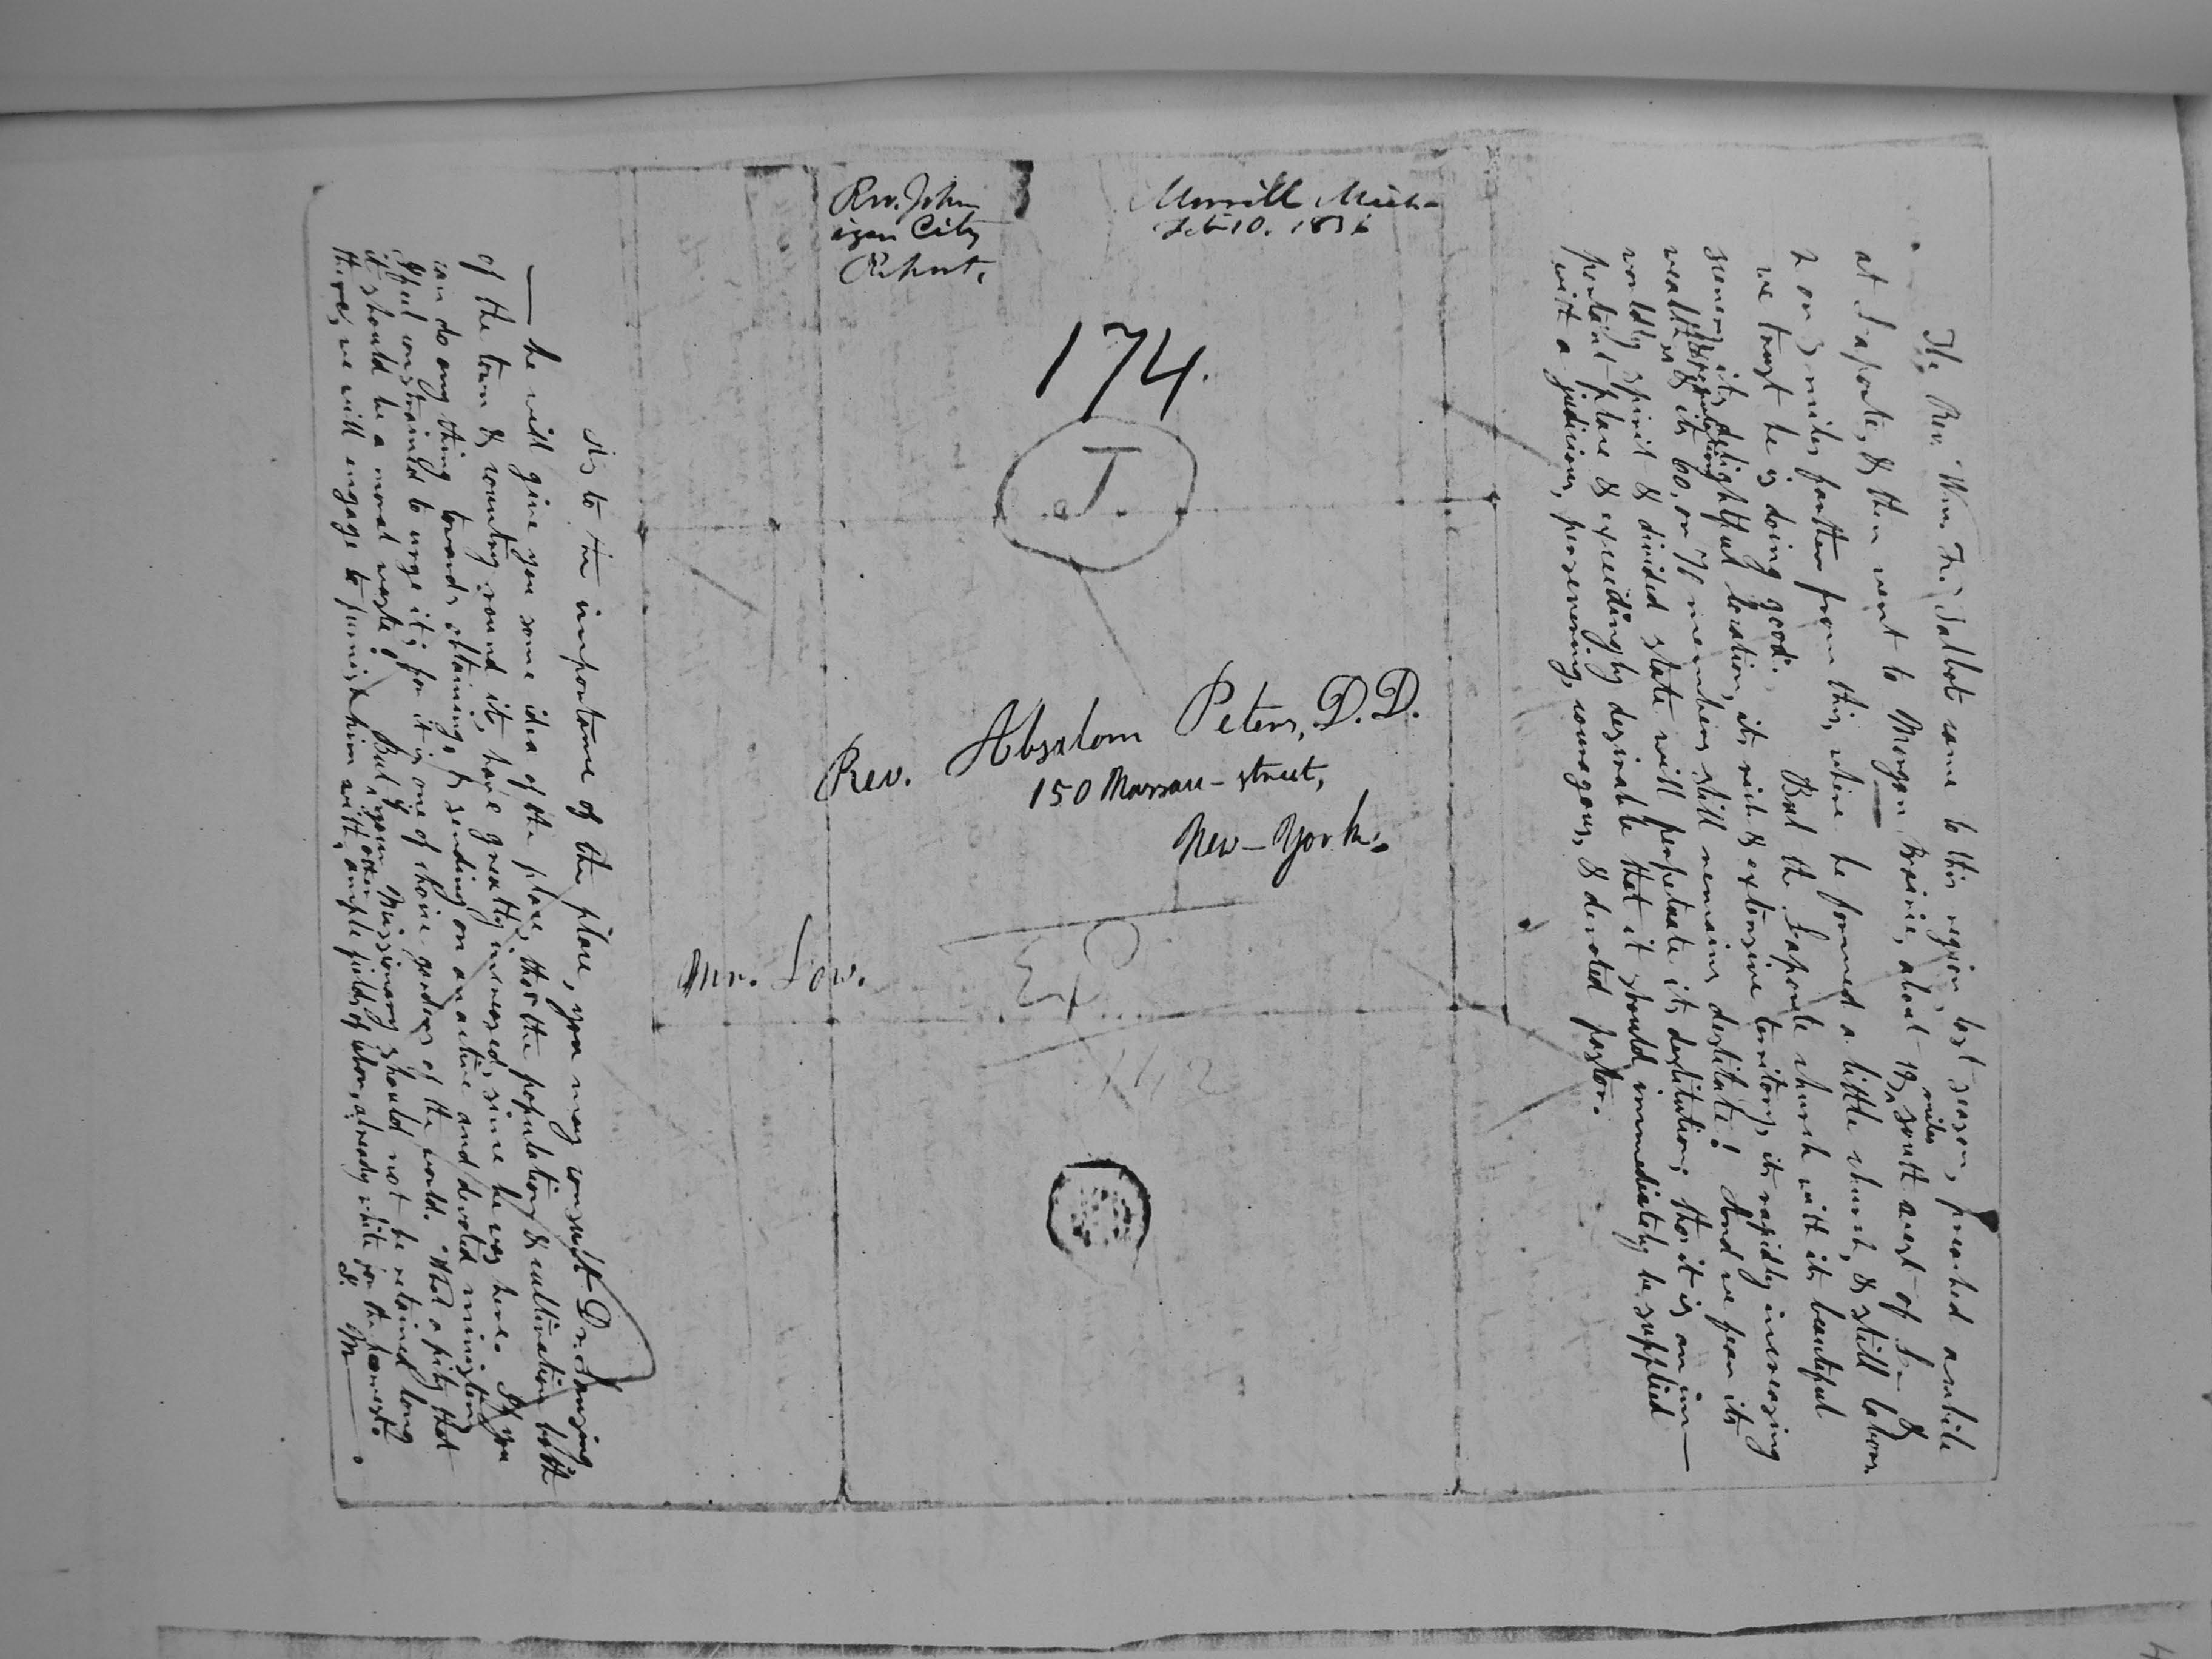 Rev. John Morrill Mich-
igan City Feb 10. 1836
Report,
174.
J.
Rev. Absalom Peters, D.D.
150 Nassau-street,
New-York.
Mr. Low.
142
The Rev. Wm. K. Talbot came to this region last season, preached awhile
at Laporte, & then went to Morgan Prairie, about 12 miles south west of L— &
2 or 3 miles farther from this, where he formed a little church, & still labors.
We trust he is doing good. But the Laporte church with its beautiful
scenery, its delightful location, its rich & extensive territory, its rapidly increasing
wealth & population, & its 60, or 70 members still remains destitute! And we fear its
worldly spirit & divided state will perpetuate its destitution; tho' it is an im-
portant place & exceedingly desirable that it should immediately be supplied
with a judicious, persevering, courageous, & devoted pastor.
As to the importance of the place, you may consult Dr. Lansing
— he will give you some idea of the place, tho' the population & cultivation both
of the town & country round it, have greatly increased, since he was here. If you
can do any thing towards obtaining, & sending on an active and devoted minister,
I feel constrained to urge it; for it is one of choice gardens of the world. What a pity that
it should be a moral waste! But if your Missionary should not be retained long
there, we will engage to furnish him with other ample fields of labor, already white for the harvest.
J. M—.